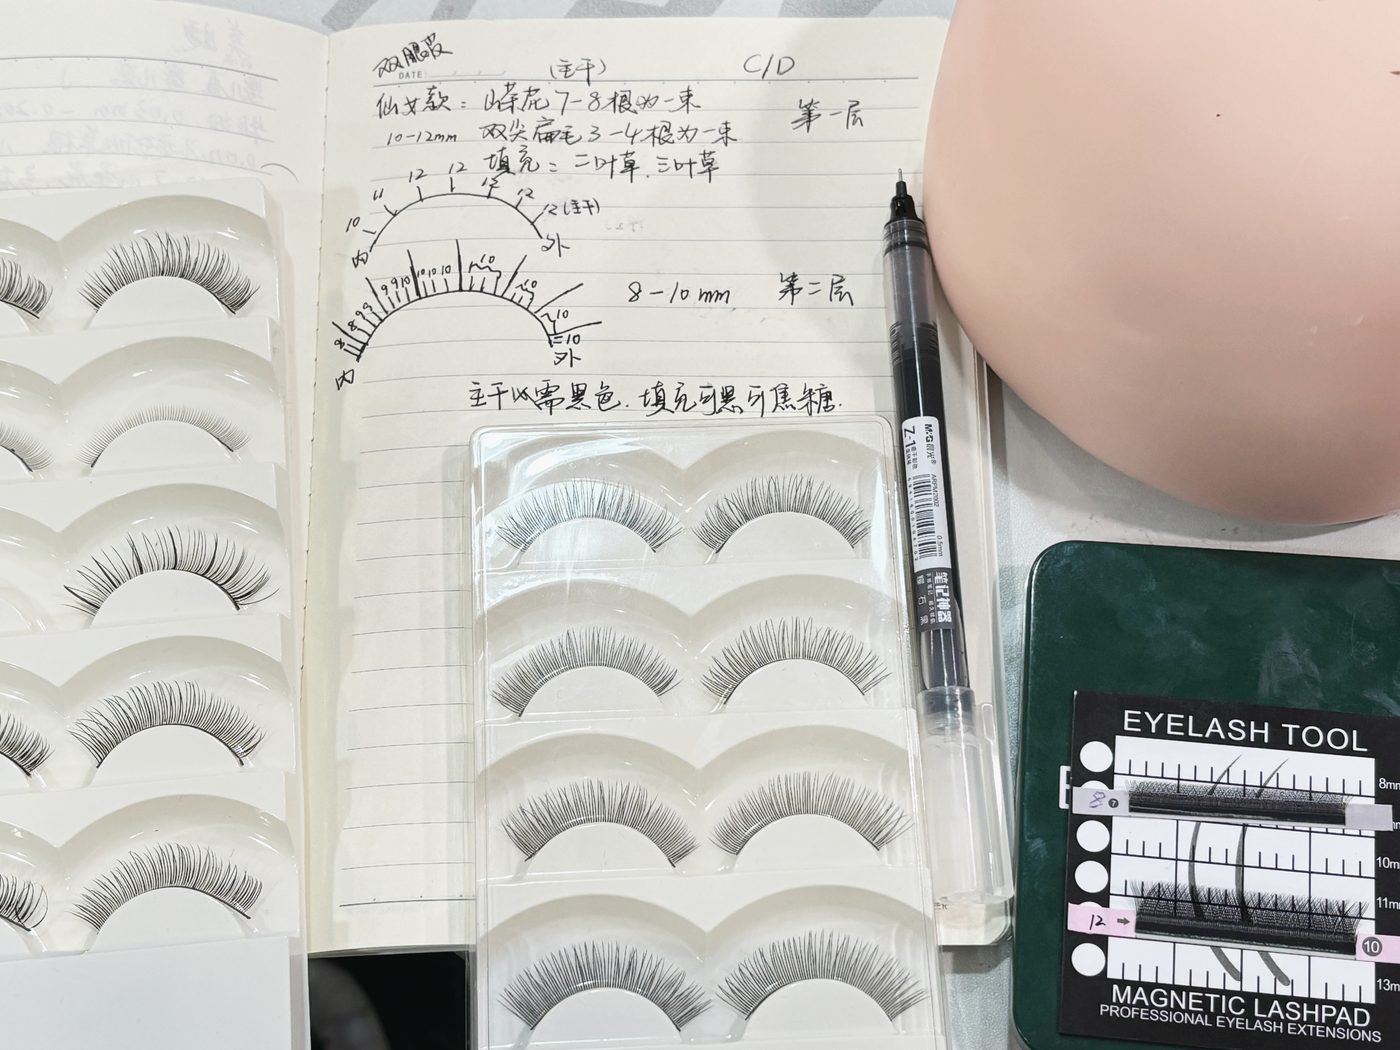 双眼皮
DATE:
(主干)
C/D
仙女款: 嫁接 7-8根为一束
第一层
10-12mm 双尖扁毛3-4根为一束
填充: 二叶草、三叶草
10 11 12 12 12 12 12(主干)
内 外
8 8 9 9 9 9 10 10 10 10 10 10 10 =10
8-10mm 第二层
内 外
主干必需黑色. 填充可黑可焦糖.
M&G 晨光®
Z-1
ARPM2002
0.5mm
笔记神器
曜石黑
EYELASH TOOL
8mm
8 7
10mm
11mm
12 →
10
13mm
MAGNETIC LASHPAD
PROFESSIONAL EYELASH EXTENSIONS